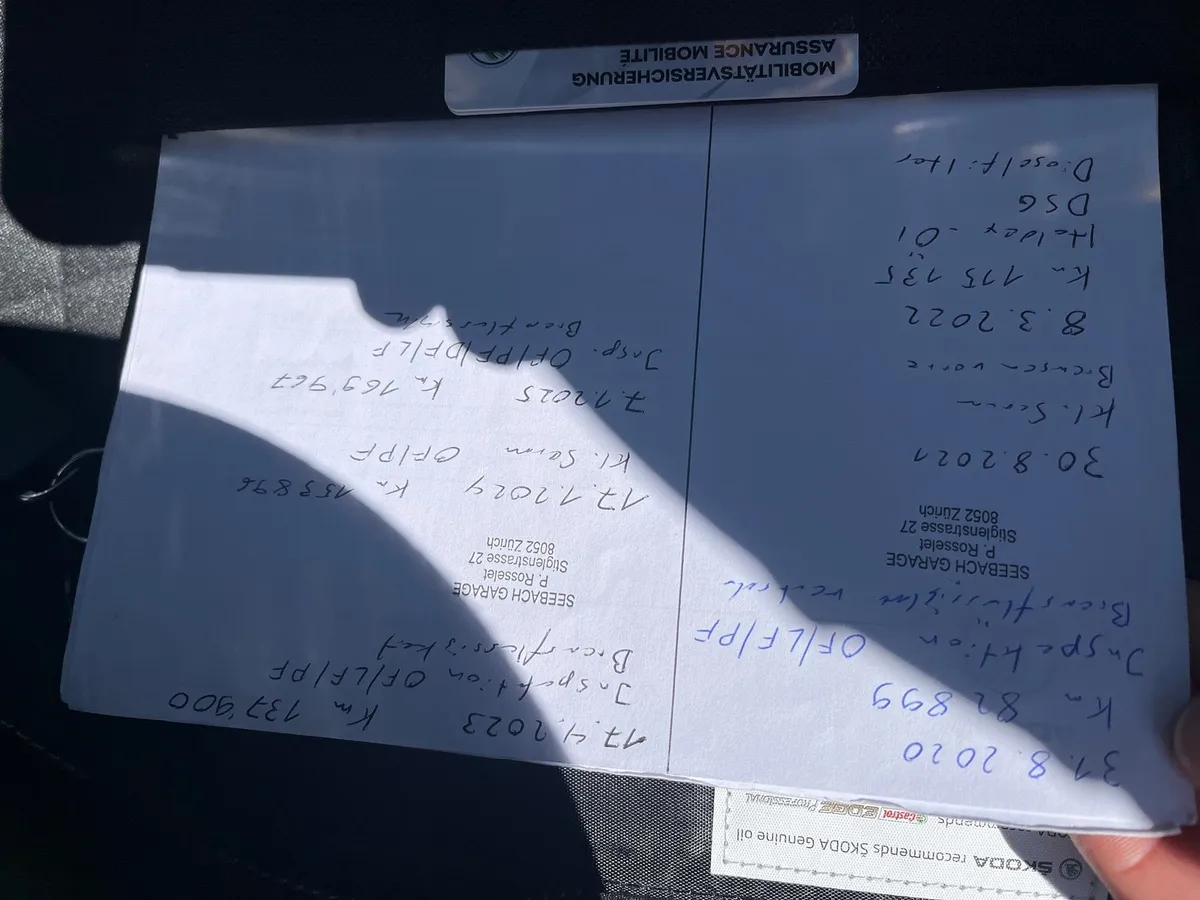 ŠKODA recommends ŠKODA Genuine oil
Castrol EDGE PROFESSIONAL
31.8.2020
Km 82 899
Inspektion OF/LF/PF
Bremsflüssigkeit
SEEBACH GARAGE
P. Rosselet
Stiglenstrasse 27
8052 Zürich
30.8.2021
Kl. Service
Bremsen vorne
8.3.2022
Km 115 135
Haldex - Öl
DSG
Dieselfilter
17.4.2023 Km 137'900
Inspektion OF/LF/PF
Bremsflüssigkeit
SEEBACH GARAGE
P. Rosselet
Stiglenstrasse 27
8052 Zürich
17.1.2024 Km 153 896
Kl. Serv. OF/PF
7.1.2025 Km 169'967
Insp. OF/PF/DF/LF
MOBILITÄTSVERSICHERUNG
ASSURANCE MOBILITÉ